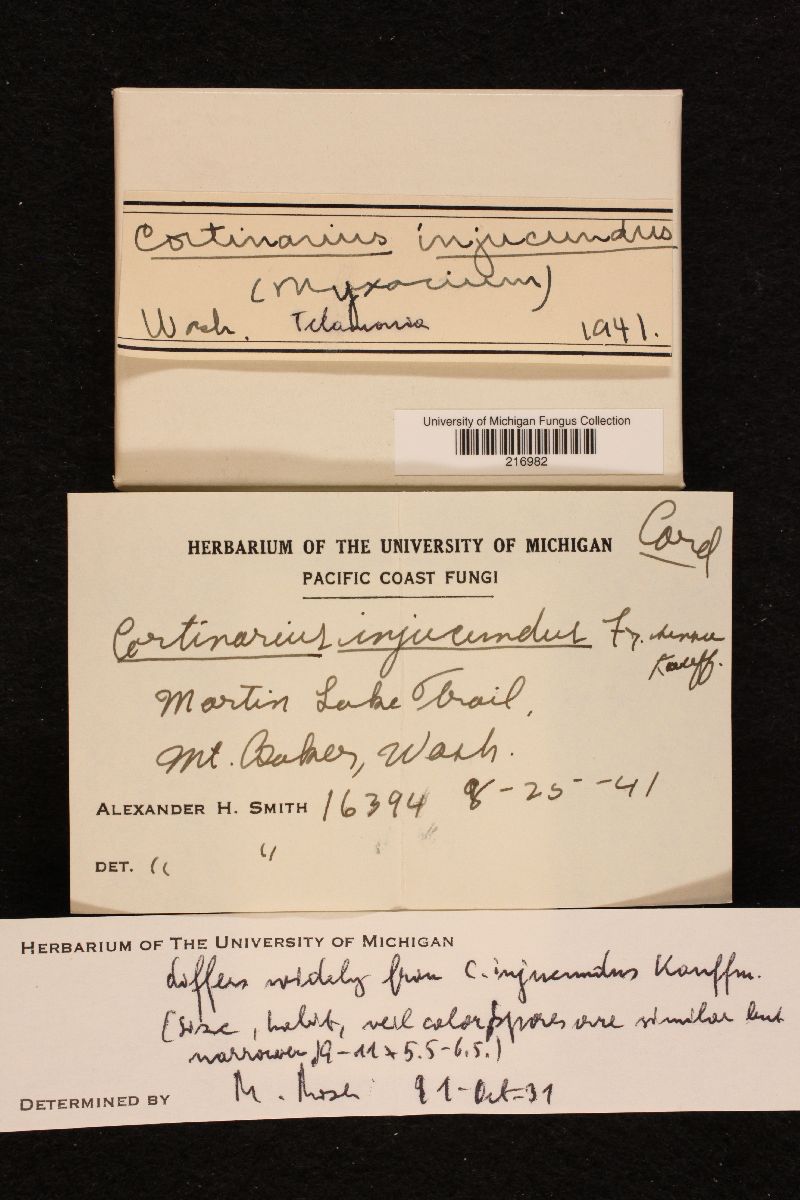 Cortinarius injucundus
(Myxacium)
Wash. Telamonia 1941.
University of Michigan Fungus Collection
216982
Card
HERBARIUM OF THE UNIVERSITY OF MICHIGAN
PACIFIC COAST FUNGI
Cortinarius injucundus Fr. sensu
Kauff.
Martin Lake Trail,
Mt. Baker, Wash.
ALEXANDER H. SMITH 16394 8-25-41
DET. " "
HERBARIUM OF THE UNIVERSITY OF MICHIGAN
differs widely from C. injucundus Kauffm.
(size, habit, veil color, spores are similar but
narrower, 9-11 x 5.5-6.5.)
DETERMINED BY M. Moser 91-Oct-31